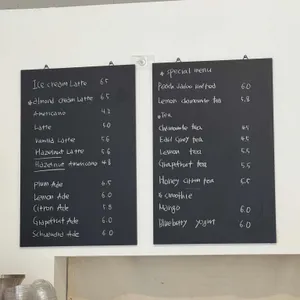 Ice cream Latte 6.5
*almond cream Latte 6.5
Americano 4.3
Latte 5.0
Vanilla Latte 5.6
Hazelnut Latte 5.6
Hazelnut Americano 4.8
Plum Ade 6.5
Lemon Ade 6.0
Citron Ade 5.8
Grapefruit Ade 6.0
Ade 6.0
* special menu
6.0
Lemon chamomile tea 5.8
*Tea
Chamomile tea 4.5
Earl Grey tea 4.5
Lemon tea 5.5
Grapefruit tea 5.5
Honey citron tea 5.5
Mango 6.0
Blueberry yogurt 6.0